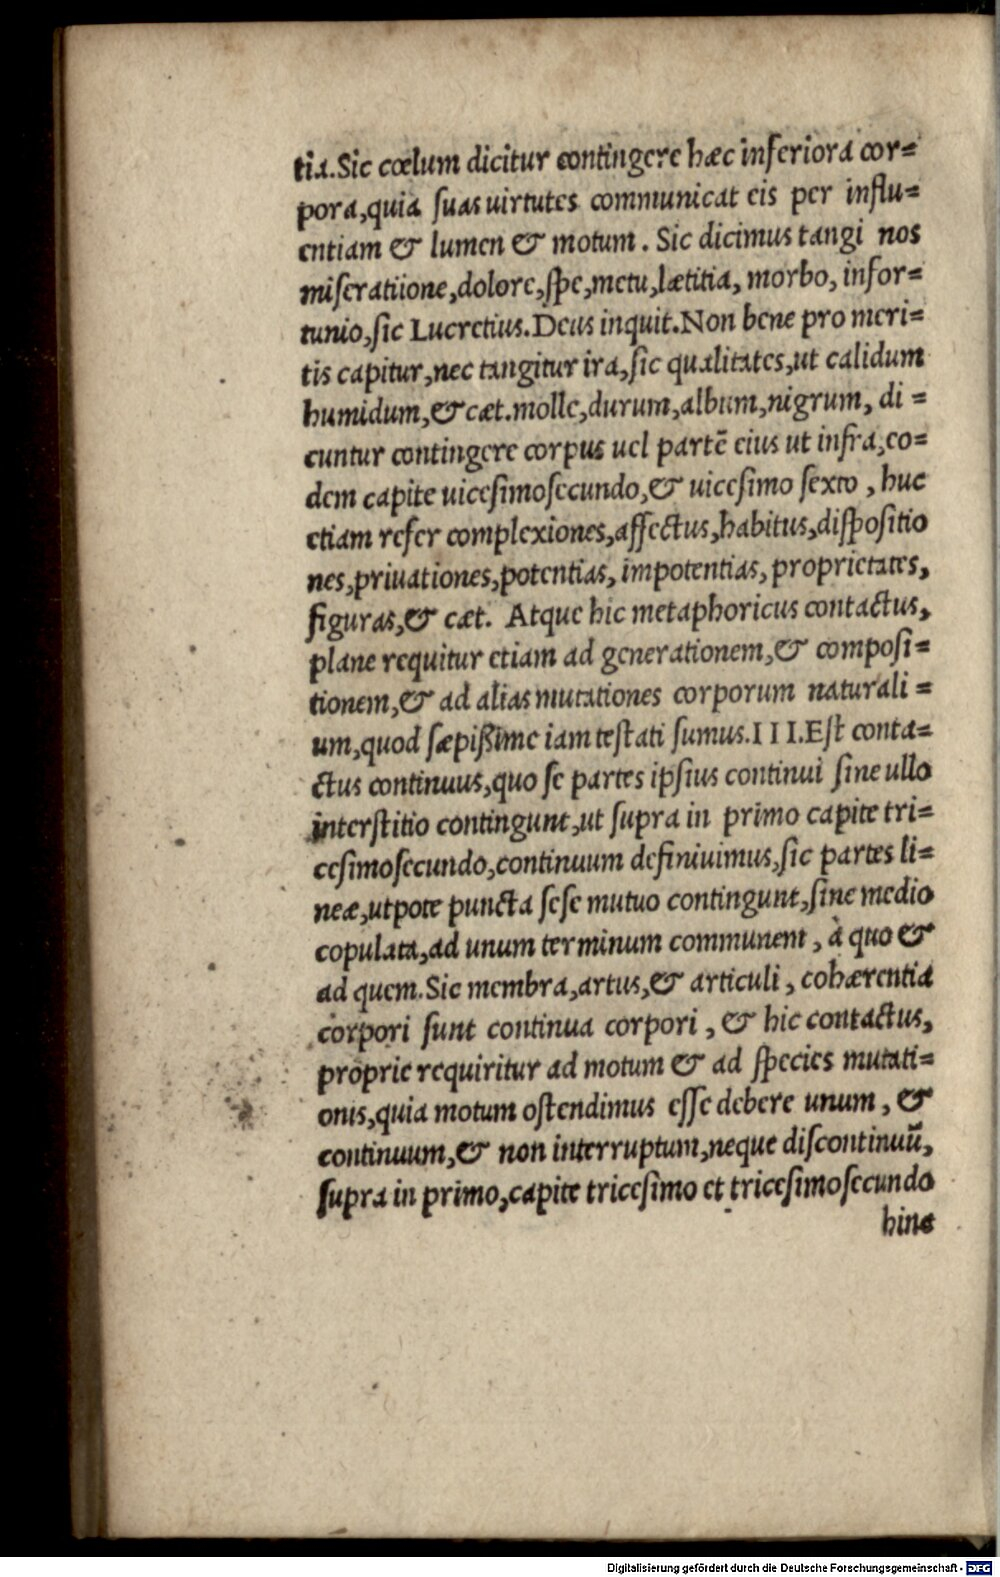 tia.Sic cœlum dicitur contingere hæc inferiora cor=
pora,quia suas uirtutes communicat eis per influ=
entiam & lumen & motum. Sic dicimus tangi nos
miſeratiione,dolore,ſpe,metu,lætitia, morbo, infor=
tunio,ſic Lucretius.Deus inquit.Non bene pro meri=
tis capitur,nec tangitur ira,ſic qualitates,ut calidum
humidum,& cæt.molle,durum,album,nigrum, di=
cuntur contingere corpus uel partē eius ut infra,eo=
dem capite uiceſimoſecundo,& uiceſimo ſexto, huc
etiam refer complexiones,affectus,habitus,diſpoſitio
nes,priuationes,potentias, impotentias, proprietates,
figuras,& cæt. Atque hic metaphoricus contactus,
plane requitur etiam ad generationem,& compoſi=
tionem,& ad alias mutationes corporum naturali=
um,quod ſæpißime iam teſtati ſumus.III.Eſt conta=
ctus continuus,quo ſe partes ipſius continui ſine ullo
interſtitio contingunt,ut ſupra in primo capite tri=
ceſimoſecundo,continuum definiuimus,ſic partes li=
neæ,utpote puncta ſeſe mutuo contingunt,ſine medio
copulata,ad unum terminum communem, à quo &
ad quem.Sic membra,artus,& articuli, cohærentia
corpori ſunt continua corpori, & hic contactus,
proprie requiritur ad motum & ad ſpecies mutati=
onis,quia motum oſtendimus eſſe debere unum, &
continuum,& non interruptum,neque diſcontinuū,
ſupra in primo,capite triceſimo et triceſimoſecundo
hinc
Digitalisierung gefördert durch die Deutsche Forschungsgemeinschaft - DFG